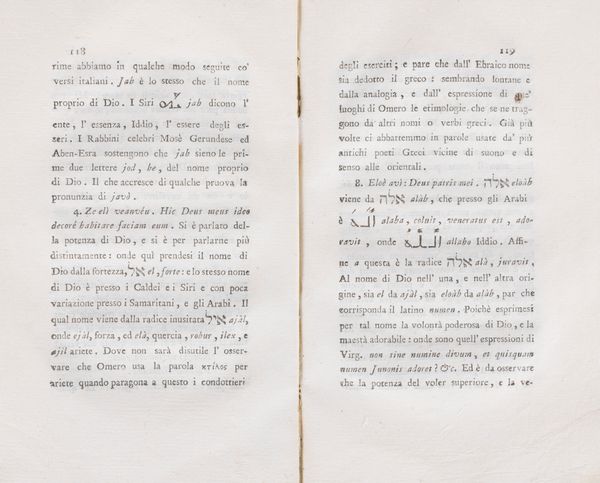 118
rime abbiamo in qualche modo seguite co'
versi italiani. Jah è lo stesso che il nome
proprio di Dio. I Siri jah dicono l'
ente, l' essenza, Iddio, l' essere degli es-
seri. I Rabbini celebri Mosè Gerundese ed
Aben-Esra sostengono che jah sieno le pri-
me due lettere jod, he, del nome proprio
di Dio. Il che accresce di qualche pruova la
pronunzia di javò.
4. Ze elì veanvéu. Hic Deus meus ideo
decorè habitare faciam eum. Si è parlato del-
la potenza di Dio, e si è per parlarne più
distintamente: onde quì prendesi il nome di
Dio dalla fortezza, אל el, forte: e lo stesso nome
di Dio è presso i Caldei e i Siri e con poca
variazione presso i Samaritani, e gli Arabi. Il
qual nome viene dalla radice inusitata איל ajàl,
onde ejàl, forza, ed elà, quercia, robur, ilex, e
ajìl ariete. Dove non sarà disutile l' osser-
vare che Omero usa la parola κτίλος per
ariete quando paragona a questo i condottieri
119
degli eserciti; e pare che dall' Ebraico nome
sia dedotto il greco: sembrando lontane e
dalla analogia, e dall' espressione di que'
luoghi di Omero le etimologie che se ne trag-
gono da altri nomi o verbi greci. Già più
volte ci abbattemmo in parole usate da' più
antichi poeti Greci vicine di suono e di
senso alle orientali.
8. Eloè avì: Deus patris mei. אלה eloàh
viene da אלה alàh, che presso gli Arabi
è alaha, coluit, veneratus est, ado-
ravit, onde الله allaho Iddio. Affi-
ne a questa è la radice אלה alà, juravit,
Al nome di Dio nell' una, e nell' altra ori-
gine, sia el da ajàl, sia eloàh da alàh, par che
corrisponda il latino numen. Poichè esprimesi
per tal nome la volontà poderosa di Dio, e la
maestà adorabile: onde sono quell' espressioni di
Virg. non sine numine divum, et quisquam
numen Junonis adoret? &c. Ed è da osservare
che la potenza del voler superiore, e la ve-